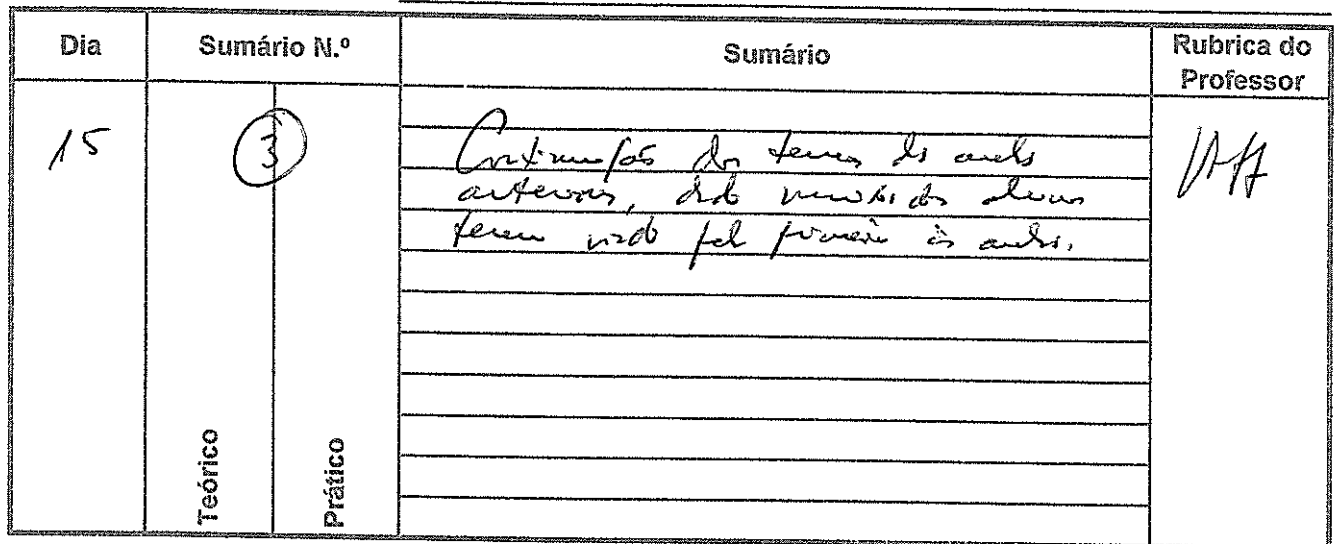 Dia
Sumário N.º
Sumário
Rubrica do
Professor
15
3
Continuação dos temas das aulas
anteriores, dado vários dos alunos
terem vindo pela primeira às aulas.
Teórico
Prático